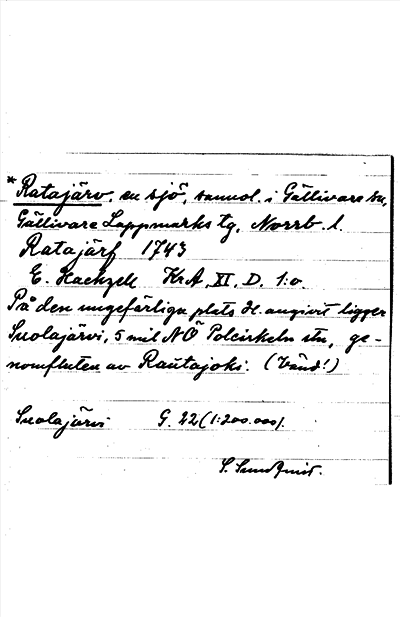 * Ratajärv, en sjö, sannol. i Gällivare sn,
Gällivare Lappmarks tg, Norrb. l.
Ratajärf 1743
E. Hackzell KrA, XI, D. 1:o
På den ungefärliga plats H. angivit ligger
Suolajärvi, 5 mil NÖ Polcirkeln stn, ge-
nomfluten av Rautajoki. (Vänd!)
Suolajärvi G. 22 (1:200.000).
S. Sundqvist.